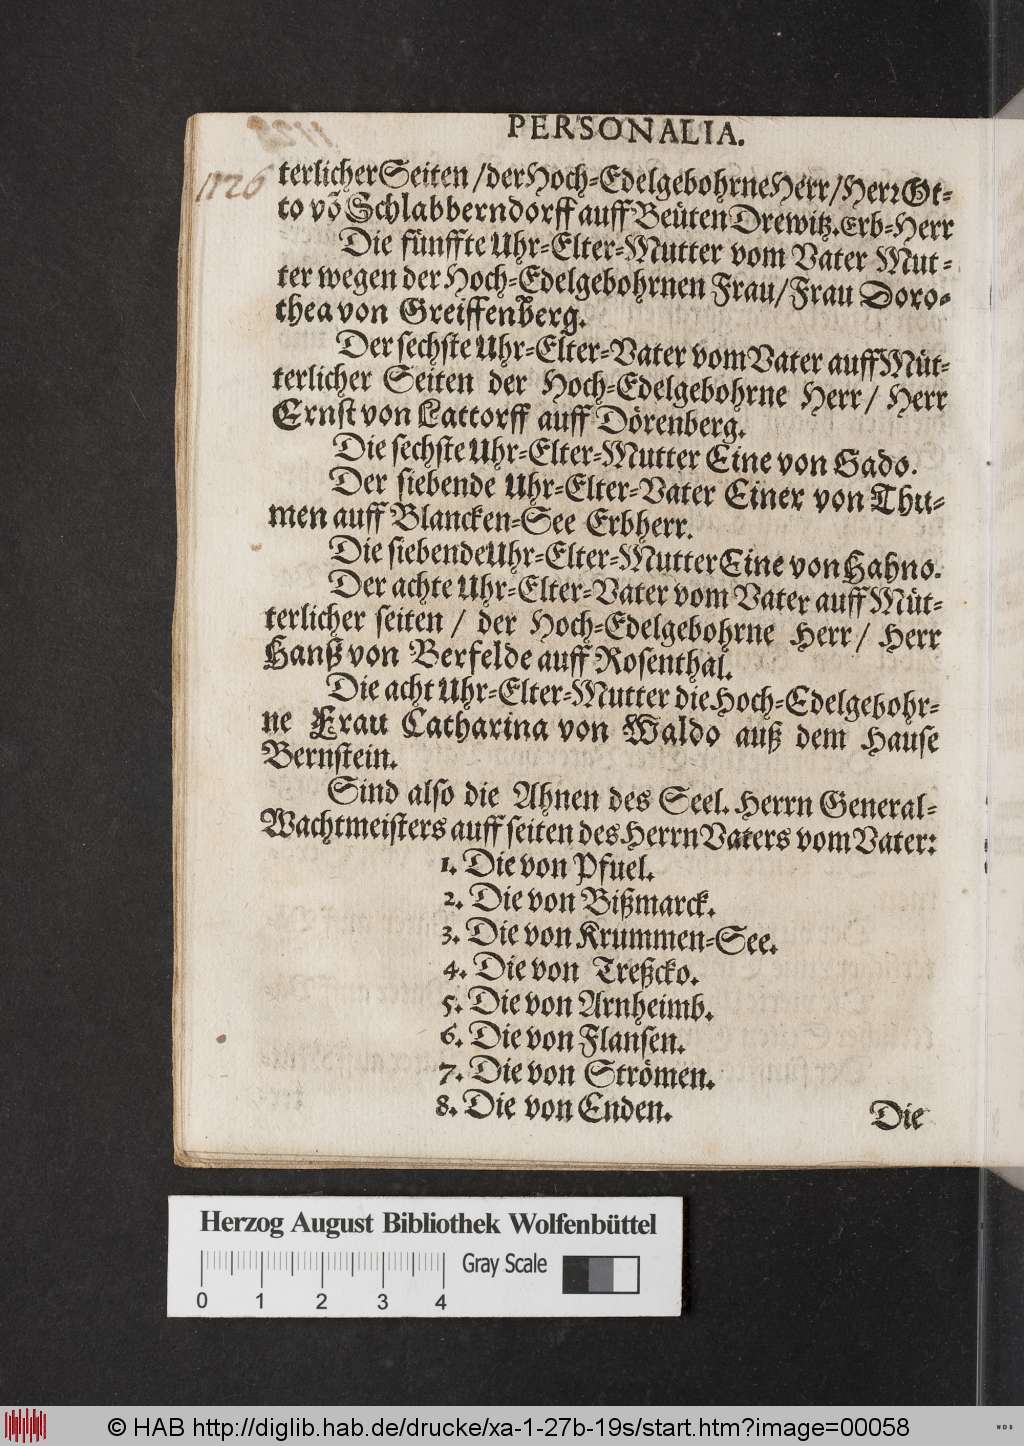 PERSONALIA.
1126
terlicher Seiten / der Hoch-Edelgebohrne Herr / Herr Ot-
to võ Schlabberndorff auff Beüten Drewitz. Erb-Herr
Die fünffte Uhr-Elter-Mutter vom Vater Mut-
ter wegen der Hoch-Edelgebohrnen Frau / Frau Doro-
thea von Greiffenberg.
Der sechste Uhr-Elter-Vater vom Vater auff Müt-
terlicher Seiten der Hoch-Edelgebohrne Herr / Herr
Ernst von Lattorff auff Dörenberg.
Die sechste Uhr-Elter-Mutter Eine von Sado.
Der siebende Uhr-Elter-Vater Einer von Thu-
men auff Blancken-See Erbherr.
Die siebende Uhr-Elter-Mutter Eine von Hahno.
Der achte Uhr-Elter-Vater vom Vater auff Müt-
terlicher seiten / der Hoch-Edelgebohrne Herr / Herr
Hanß von Berfelde auff Rosenthal.
Die acht Uhr-Elter-Mutter die Hoch-Edelgebohr-
ne Frau Catharina von Waldo auß dem Hause
Bernstein.
Sind also die Ahnen des Seel. Herrn General-
Wachtmeisters auff seiten des Herrn Vaters vom Vater:
1. Die von Pfuel.
2. Die von Bißmarck.
3. Die von Krummen-See.
4. Die von Treßcko.
5. Die von Arnheimb.
6. Die von Flansen.
7. Die von Strömen.
8. Die von Enden.
Die
Herzog August Bibliothek Wolfenbüttel
Gray Scale
0 1 2 3 4
© HAB http://diglib.hab.de/drucke/xa-1-27b-19s/start.htm?image=00058